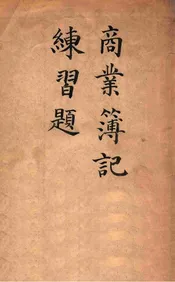 商業簿記
練習題